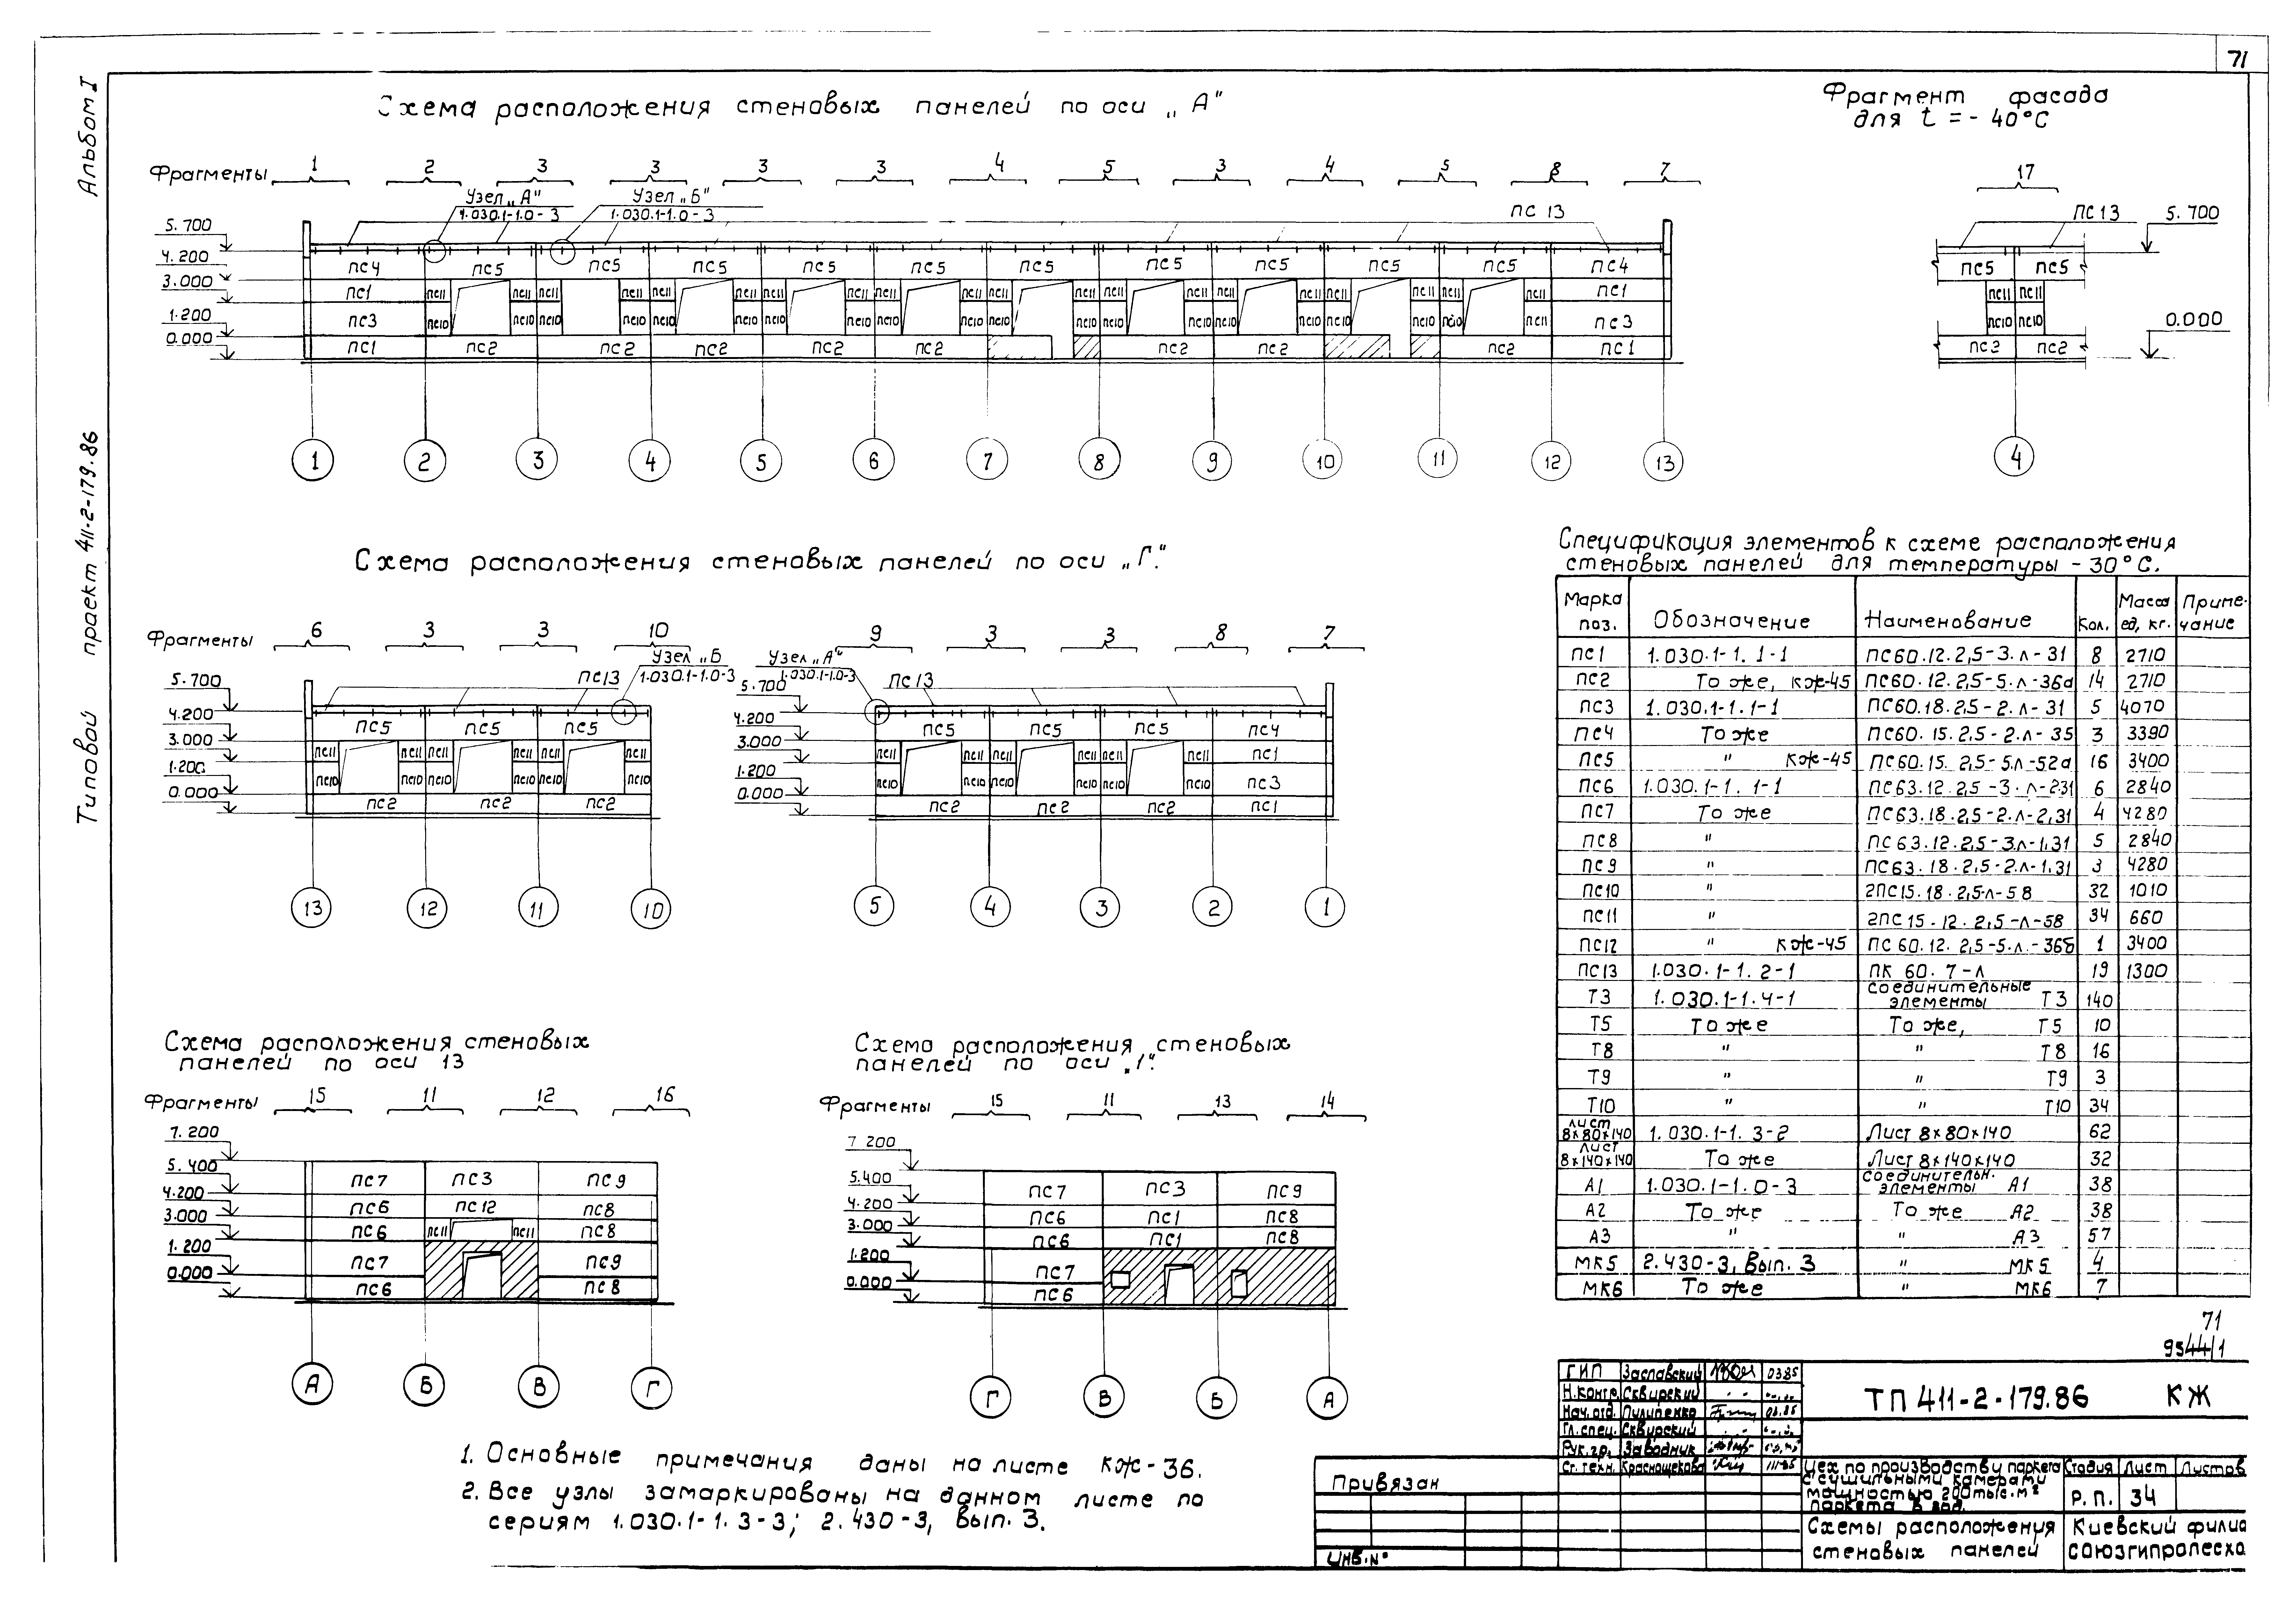 71
Альбом I
Типовой проект 411-2-179.86
Схема расположения стеновых панелей по оси „А"
Фрагменты 1 2 3 3 3 3 4 5 3 4 5 8 7
Узел „А"
1.030.1-1.0-3
Узел „Б"
1.030.1-1.0-3
ПС 13
5.700
4.200
3.000
1.200
0.000
ПС4 ПС5 ПС5 ПС5 ПС5 ПС5 ПС5 ПС5 ПС5 ПС5 ПС5 ПС4
ПС1 ПС11 ПС11 ПС11 ПС11 ПС11 ПС11 ПС11 ПС11 ПС11 ПС11 ПС11 ПС11 ПС11 ПС11 ПС11 ПС11 ПС11 ПС11 ПС11 ПС1
ПС3 ПС10 ПС10 ПС10 ПС10 ПС10 ПС10 ПС10 ПС10 ПС10 ПС10 ПС10 ПС10 ПС10 ПС10 ПС10 ПС10 ПС10 ПС10 ПС11 ПС3
ПС1 ПС2 ПС2 ПС2 ПС2 ПС2 ПС2 ПС2 ПС2 ПС1
1 2 3 4 5 6 7 8 9 10 11 12 13
Фрагмент фасада
для t = - 40°С
17
ПС13 5.700
ПС5 ПС5
ПС11 ПС11
ПС10 ПС10
0.000
ПС2 ПС2
4
Схема расположения стеновых панелей по оси „Г".
Фрагменты 6 3 3 10
Узел „Б
1.030.1-1.0-3
ПС13
5.700
4.200
3.000
1.200
0.000
ПС5 ПС5 ПС5
ПС11 ПС11 ПС11 ПС11 ПС11 ПС11
ПС10 ПС10 ПС10 ПС10 ПС10 ПС10
ПС2 ПС2 ПС2
13 12 11 10
9 3 3 8 7
Узел „А"
1.030.1-1.0-3
ПС13
5.700
4.200
3.000
1.200
0.000
ПС5 ПС5 ПС5 ПС4
ПС11 ПС11 ПС11 ПС11 ПС11 ПС11 ПС1
ПС10 ПС10 ПС10 ПС10 ПС10 ПС10 ПС3
ПС2 ПС2 ПС2 ПС1
5 4 3 2 1
Схема расположения стеновых
панелей по оси 13
Фрагменты 15 11 12 16
7.200
5.400
4.200
3.000
1.200
0.000
ПС7 ПС3 ПС9
ПС6 ПС12 ПС8
ПС6 ПС11 ПС11 ПС8
ПС7 ПС9
ПС6 ПС8
А Б В Г
Схема расположения стеновых
панелей по оси „1".
Фрагменты 15 11 13 14
7 200
5.400
4.200
3.000
1.200
0.000
ПС7 ПС3 ПС9
ПС6 ПС1 ПС8
ПС6 ПС1 ПС8
ПС7
ПС6
Г В Б А
1. Основные примечания даны на листе КЖ-36.
2. Все узлы замаркированы на данном листе по
сериям 1.030.1-1.3-3; 2.430-3, Вып. 3.
Спецификация элементов к схеме расположения
стеновых панелей для температуры - 30°С.
Марка поз. Обозначение Наименование Кол. Масса ед, кг. Приме-чание
ПС1 1.030.1-1.1-1 ПС60.12.2,5-3.Л-31 8 2710
ПС2 То же, КЖ-45 ПС60.12.2,5-5.Л-36а 14 2710
ПС3 1.030.1-1.1-1 ПС60.18.2,5-2.Л-31 5 4070
ПС4 То же ПС60.15.2,5-2.Л-35 3 3390
ПС5 " КЖ-45 ПС60.15.2,5-5Л-52а 16 3400
ПС6 1.030.1-1.1-1 ПС63.12.2,5-3.Л-231 6 2840
ПС7 То же ПС63.18.2,5-2.Л-2,31 4 4280
ПС8 " ПС63.12.2,5-3Л-1.31 5 2840
ПС9 " ПС63.18.2,5-2.Л-1.31 3 4280
ПС10 " 2ПС15.18.2,5Л-58 32 1010
ПС11 " 2ПС15.12.2,5-Л-58 34 660
ПС12 " КЖ-45 ПС60.12.2,5-5.Л.-36б 1 3400
ПС13 1.030.1-1.2-1 ПК 60.7-Л 19 1300
Т3 1.030.1-1.4-1 Соединительные элементы Т3 140
Т5 То же То же, Т5 10
Т8 " " Т8 16
Т9 " " Т9 3
Т10 " " Т10 34
Лист 8×80×140 1.030.1-1.3-2 Лист 8×80×140 62
Лист 8×140×140 То же Лист 8×140×140 32
А1 1.030.1-1.0-3 Соединительн. элементы А1 38
А2 То же То же А2 38
А3 " " А3 57
МК5 2.430-3, Вып. 3 " МК5 4
МК6 То же " МК6 7
71
9544/1
ГИП Заславский 03.85
Н.контр. Сквирский
Нач.отд. Пилипенко
Гл.спец. Сквирский
Рук.гр. Заводник
Ст.техн. Краснощекова
ТП 411-2-179.86 КЖ
Цех по производству паркета
с сушильными камерами
мощностью 200тыс.м²
паркета в год.
Стадия Лист Листов
Р.П. 34
Схемы расположения
стеновых панелей
Киевский филиа
Союзгипролесхо
Привязан
Инв.№